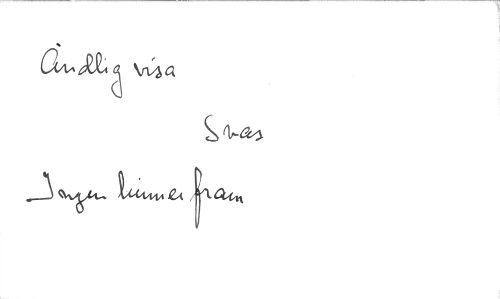 Andlig visa
Svas
Ingen hinner fram